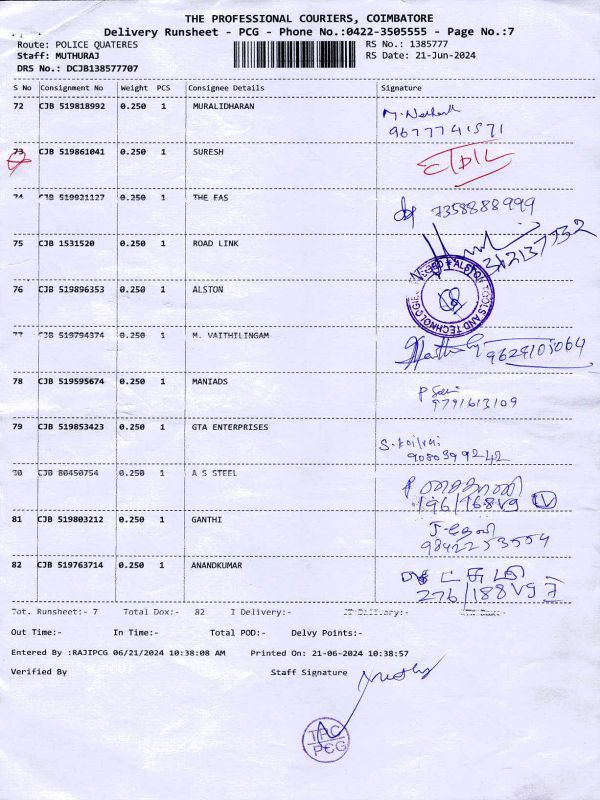 THE PROFESSIONAL COURIERS, COIMBATORE
Delivery Runsheet - PCG - Phone No.:0422-3505555 - Page No.:7
Route: POLICE QUATERES RS No.: 1385777
Staff: MUTHURAJ RS Date: 21-Jun-2024
DRS No.: DCJB138577707
S No Consignment No Weight PCS Consignee Details Signature
72 CJB 519818992 0.250 1 MURALIDHARAN
9677741571
73 CJB 519861041 0.250 1 SURESH
74 CJB 519921127 0.250 1 THE FAS 7358888999
75 CJB 1531520 0.250 1 ROAD LINK
76 CJB 519896353 0.250 1 ALSTON
ALSTON TOOLS AND TECHNOLOGIES
77 CJB 519794374 0.250 1 M. VAITHILINGAM 9629105064
78 CJB 519595674 0.250 1 MANIADS
9791613109
79 CJB 519853423 0.250 1 GTA ENTERPRISES
9080399242
80 CJB 80450754 0.250 1 A S STEEL
196/168V9 IV
81 CJB 519803212 0.250 1 GANTHI
9842253554
82 CJB 519763714 0.250 1 ANANDKUMAR
276/188V9
Tot. Runsheet:- 7 Total Dox:- 82 I Delivery:-
Out Time:- In Time:- Total POD:- Delvy Points:-
Entered By :RAJIPCG 06/21/2024 10:38:08 AM Printed On: 21-06-2024 10:38:57
Verified By Staff Signature
PCG